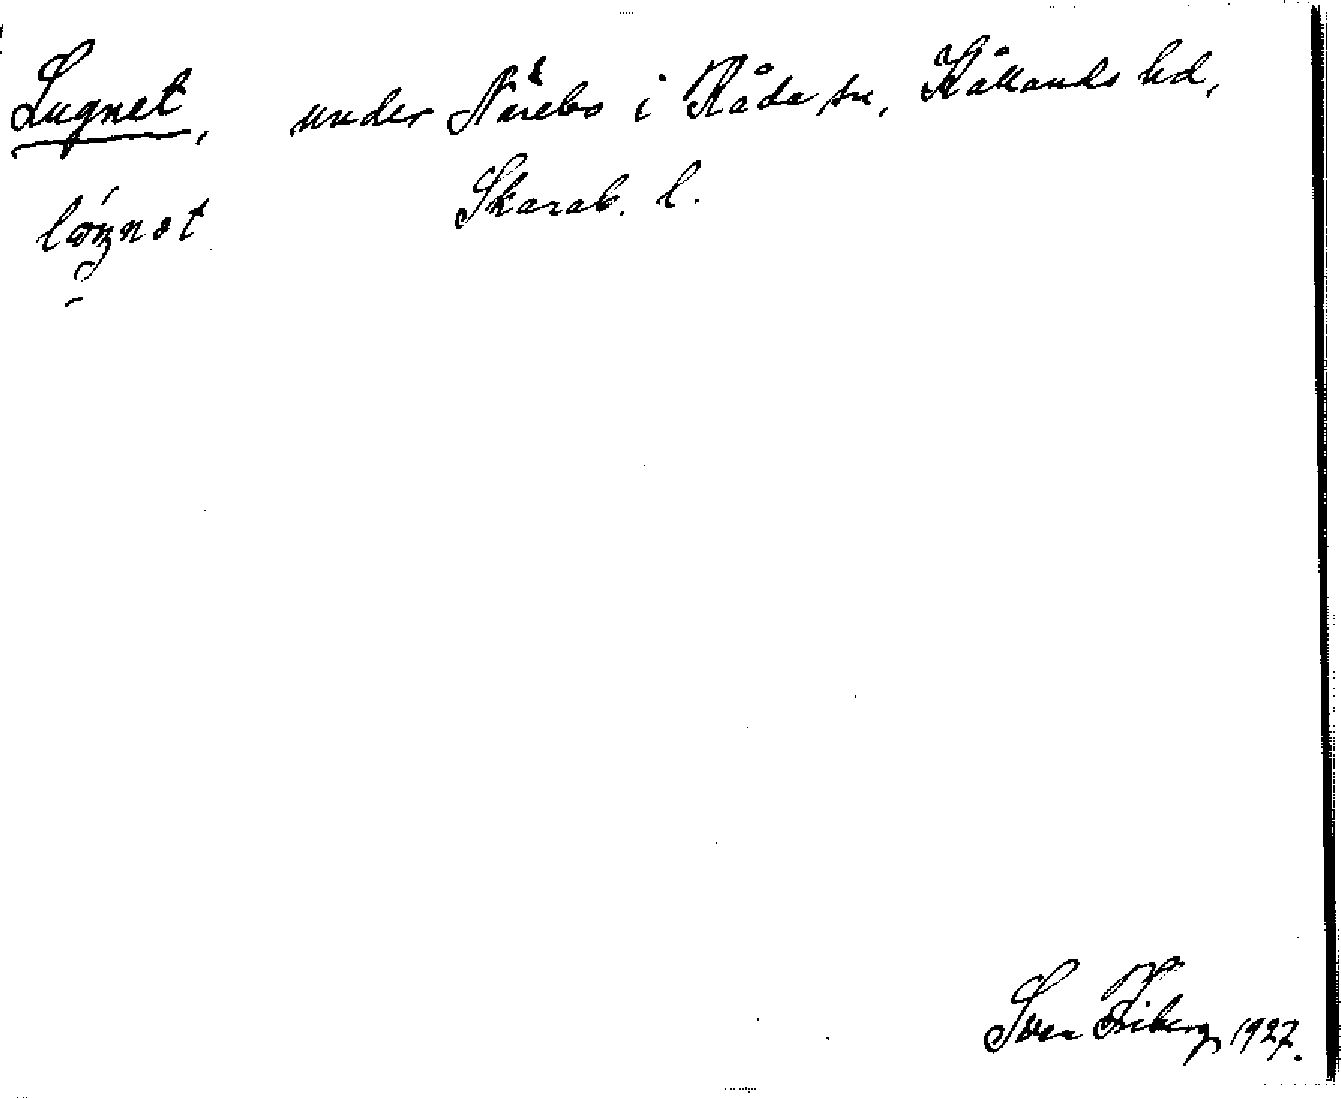 Lugnet, under Närebo i Råda sn, Kållands hd,
Skarab. l.
Sven Friberg 1927.